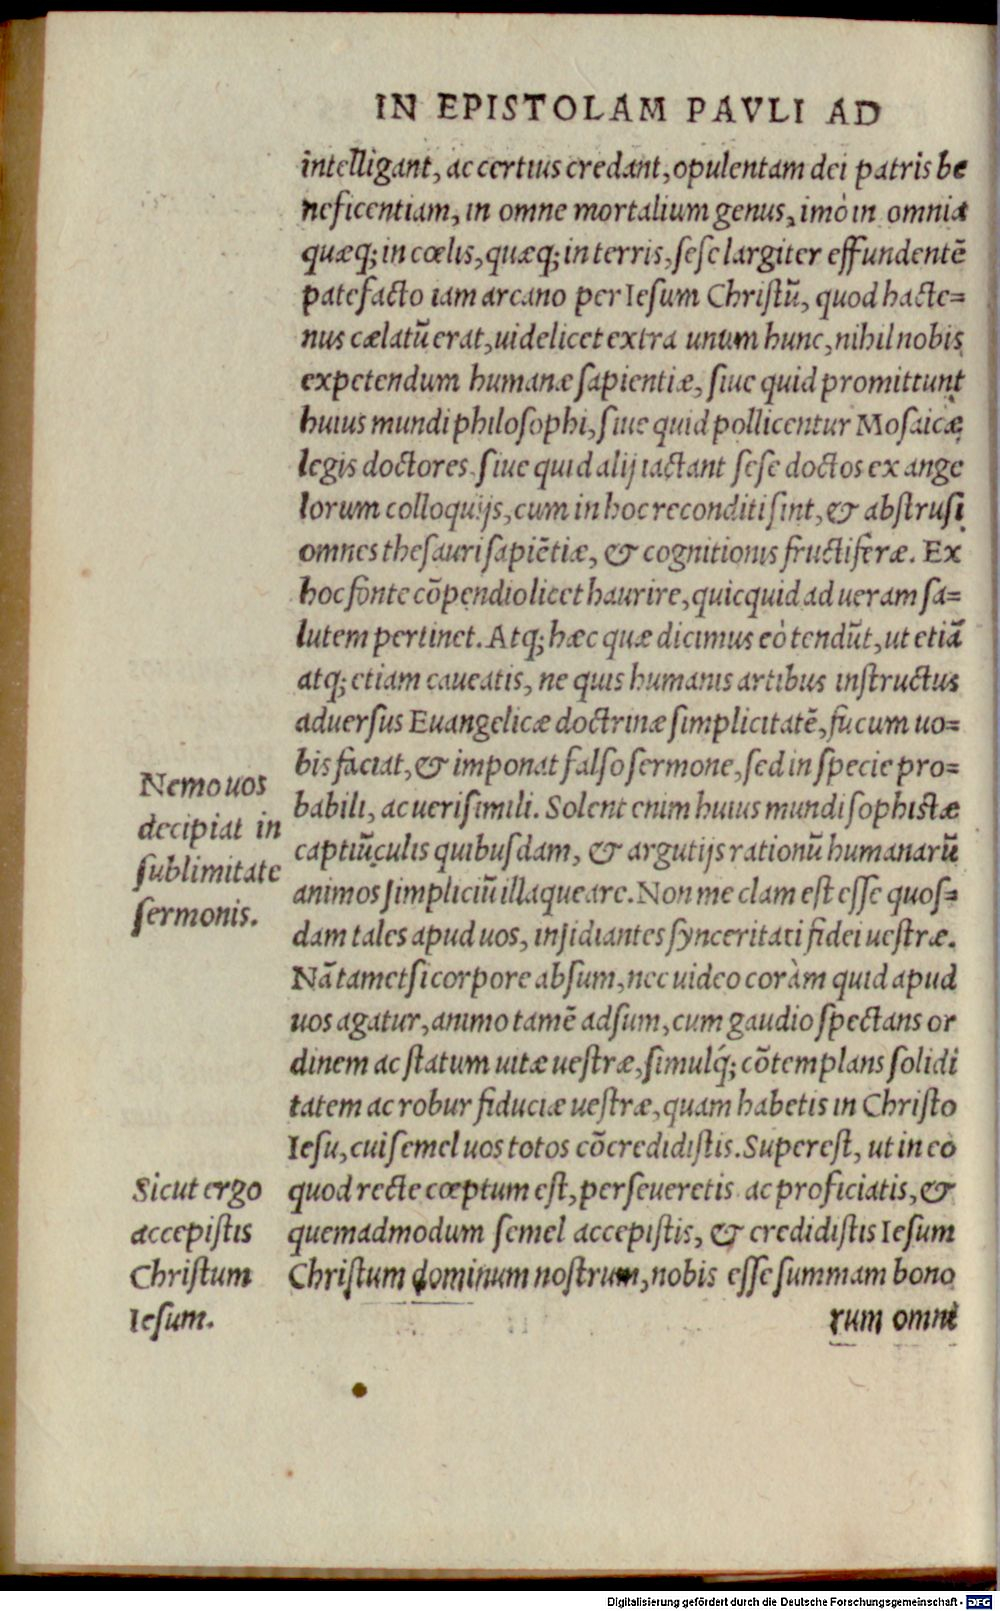 IN EPISTOLAM PAVLI AD
intelligant, ac certius credant, opulentam dei patris be
neficentiam, in omne mortalium genus, imò in omnia
quæq; in cœlis, quæq; in terris, sese largiter effundentē
patefacto iam arcano per Iesum Christū, quod hacte=
nus cælatū erat, uidelicet extra unum hunc, nihil nobis
expetendum humanæ sapientiæ, siue quid promittunt
huius mundi philosophi, siue quid pollicentur Mosaicæ
legis doctores siue quid alij iactant sese doctos ex ange
lorum colloquijs, cum in hoc reconditi sint, & abstrusi
omnes thesauri sapiētiæ, & cognitionis fructiferæ. Ex
hoc fonte cōpendio licet haurire, quicquid ad ueram sa=
lutem pertinet. Atq; hæc quæ dicimus eò tendūt, ut etiā
atq; etiam caueatis, ne quis humanis artibus instructus
aduersus Euangelicæ doctrinæ simplicitatē, fucum uo=
bis faciat, & imponat falso sermone, sed in specie pro=
babili, ac uerisimili. Solent enim huius mundi sophistæ
captiūculis quibusdam, & argutijs rationū humanarū
animos simpliciū illaqueare. Non me clam est esse quos=
dam tales apud uos, insidiantes synceritati fidei uestræ.
Nā tametsi corpore absum, nec uideo coràm quid apud
uos agatur, animo tamē adsum, cum gaudio spectans or
dinem ac statum uitæ uestræ, simulq́; cōtemplans solidi
tatem ac robur fiduciæ uestræ, quam habetis in Christo
Iesu, cui semel uos totos cōcredidistis. Superest, ut in eo
quod recte cœptum est, perseueretis ac proficiatis, &
quemadmodum semel accepistis, & credidistis Iesum
Christum dominum nostrum, nobis esse summam bono
rum omni
Nemo uos
decipiat in
sublimitate
sermonis.
Sicut ergo
accepistis
Christum
Iesum.
Digitalisierung gefördert durch die Deutsche Forschungsgemeinschaft - DFG